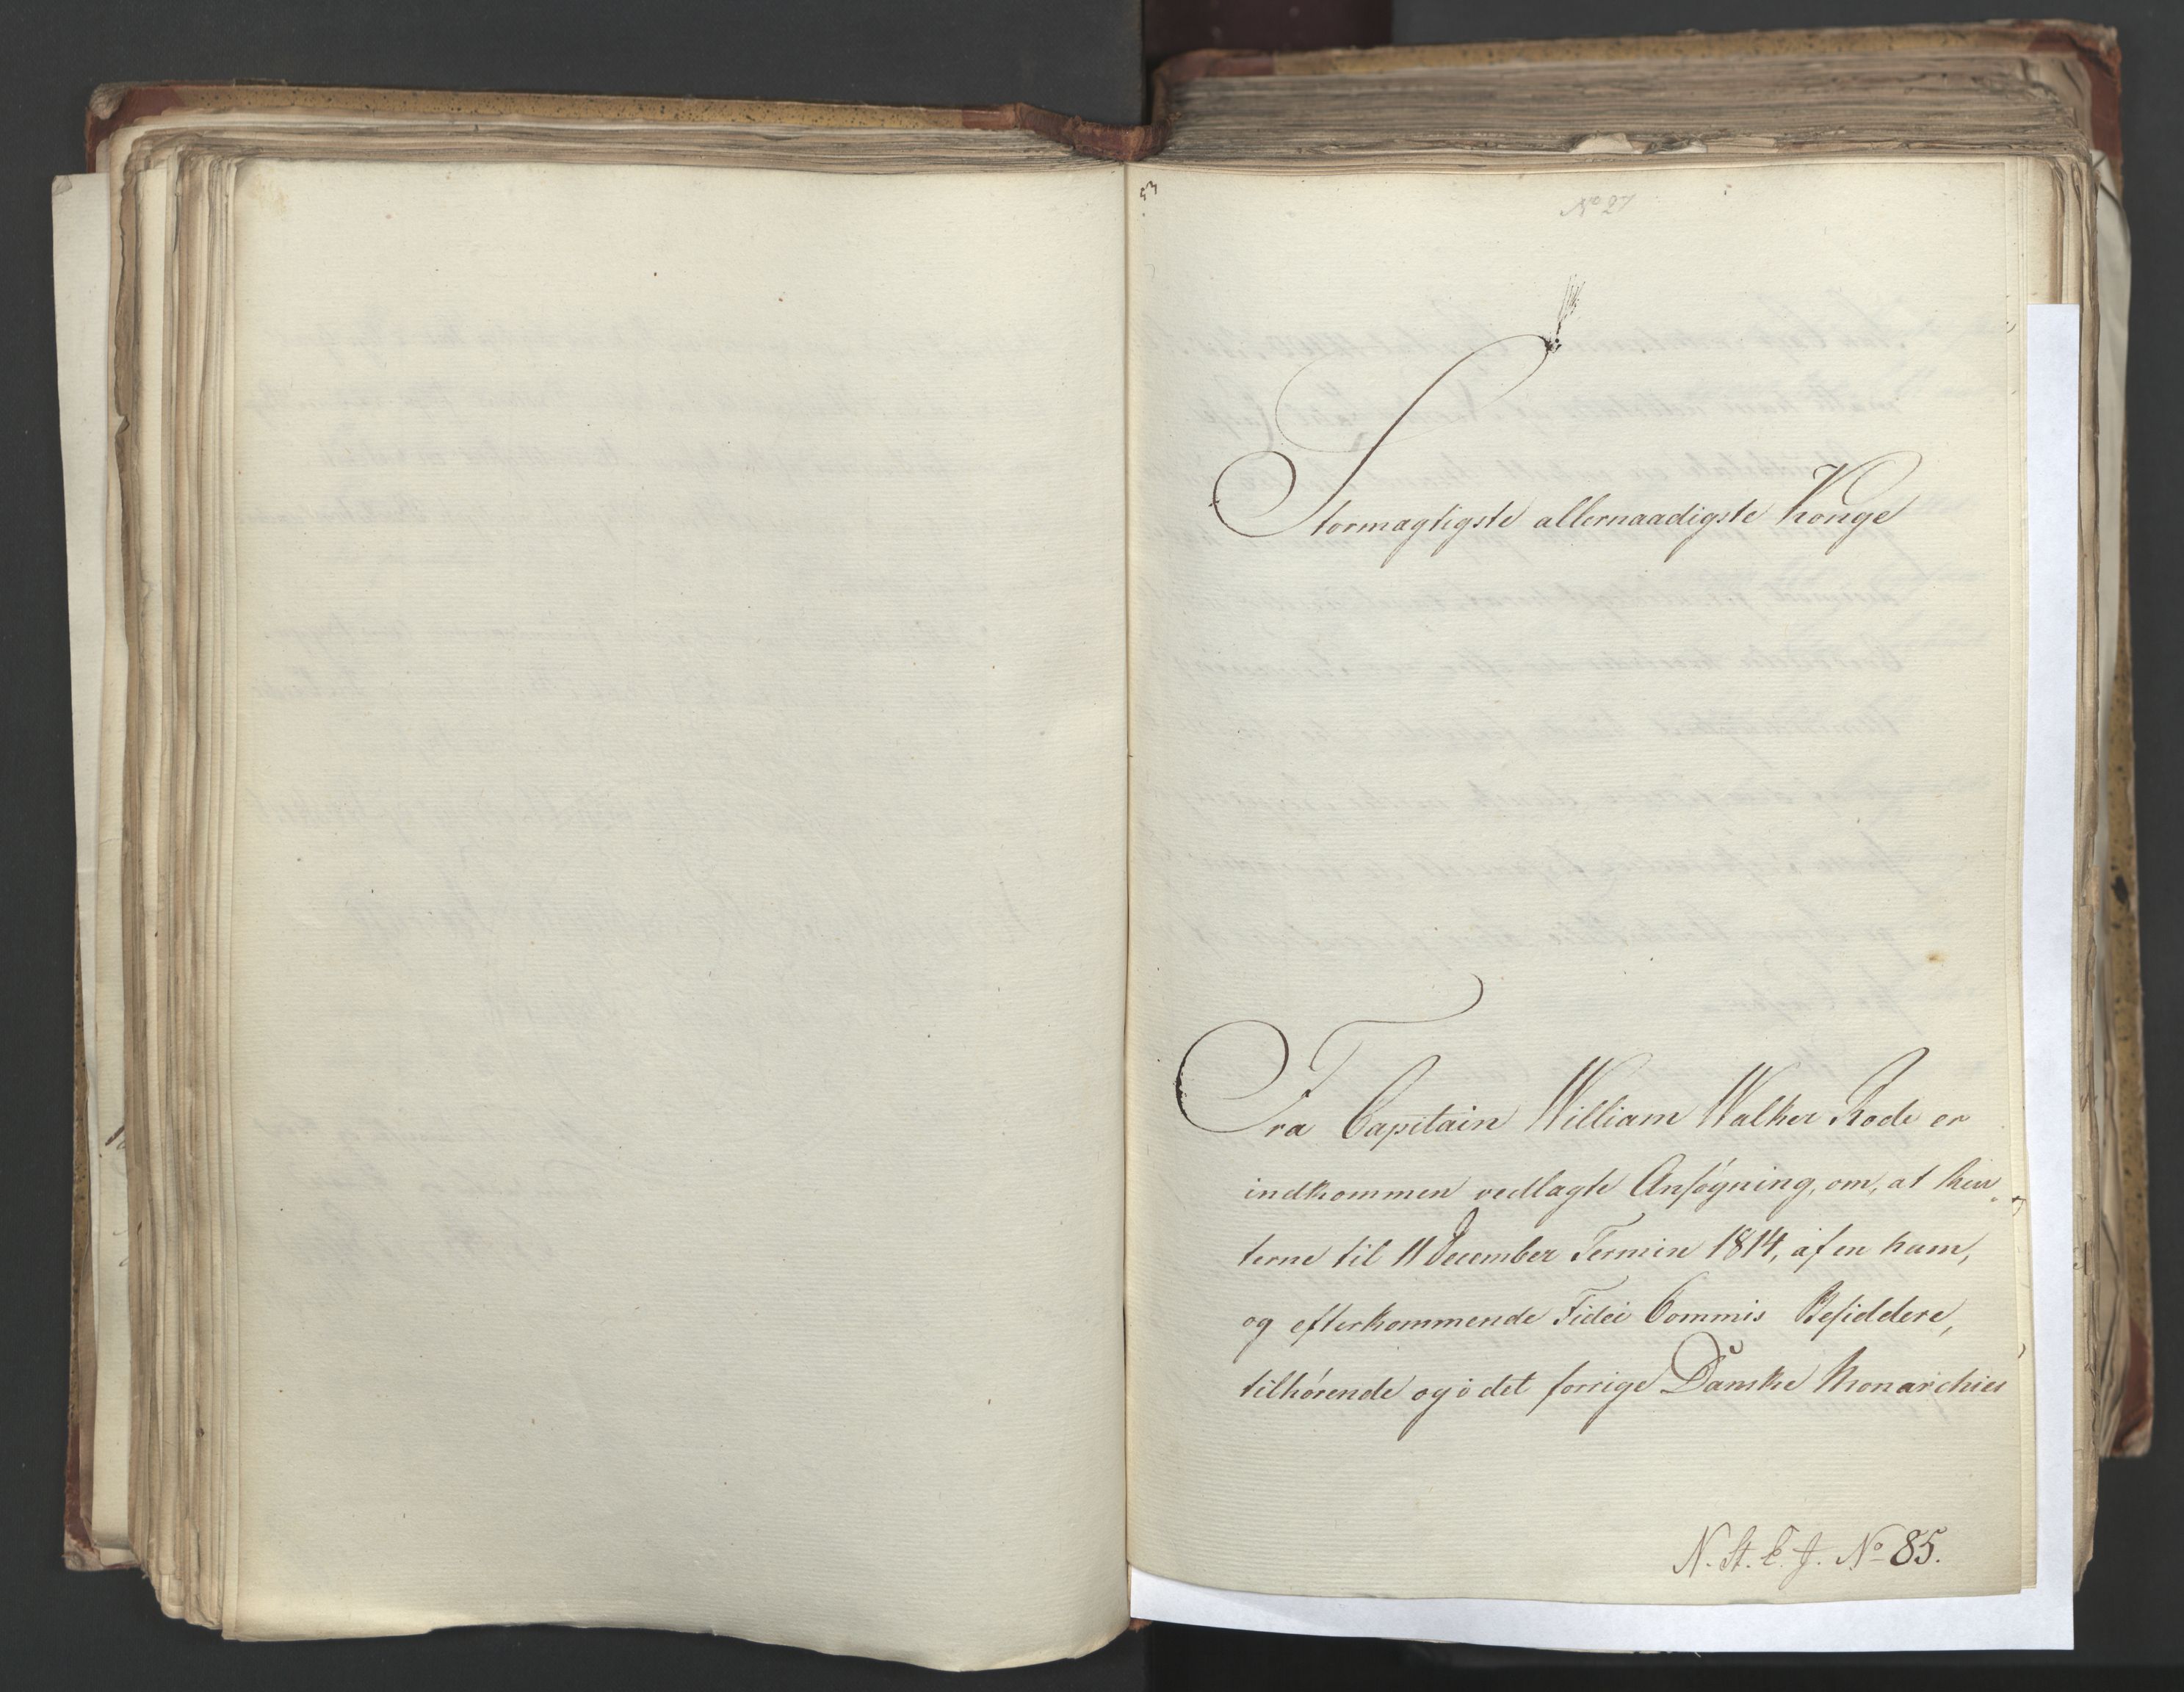 53
No 27
Stormagtigste allernaadigste Konge
Fra Capitain William Walker Rode er
indkommen vedlagte Ansøgning, om, at Ren-
terne til 11 December Termin 1814, af en ham,
og efterkommende Fidei Commis Besiddere,
tilhørende og i det forrige Danske Monarchies
N. St. C. J. No 85.